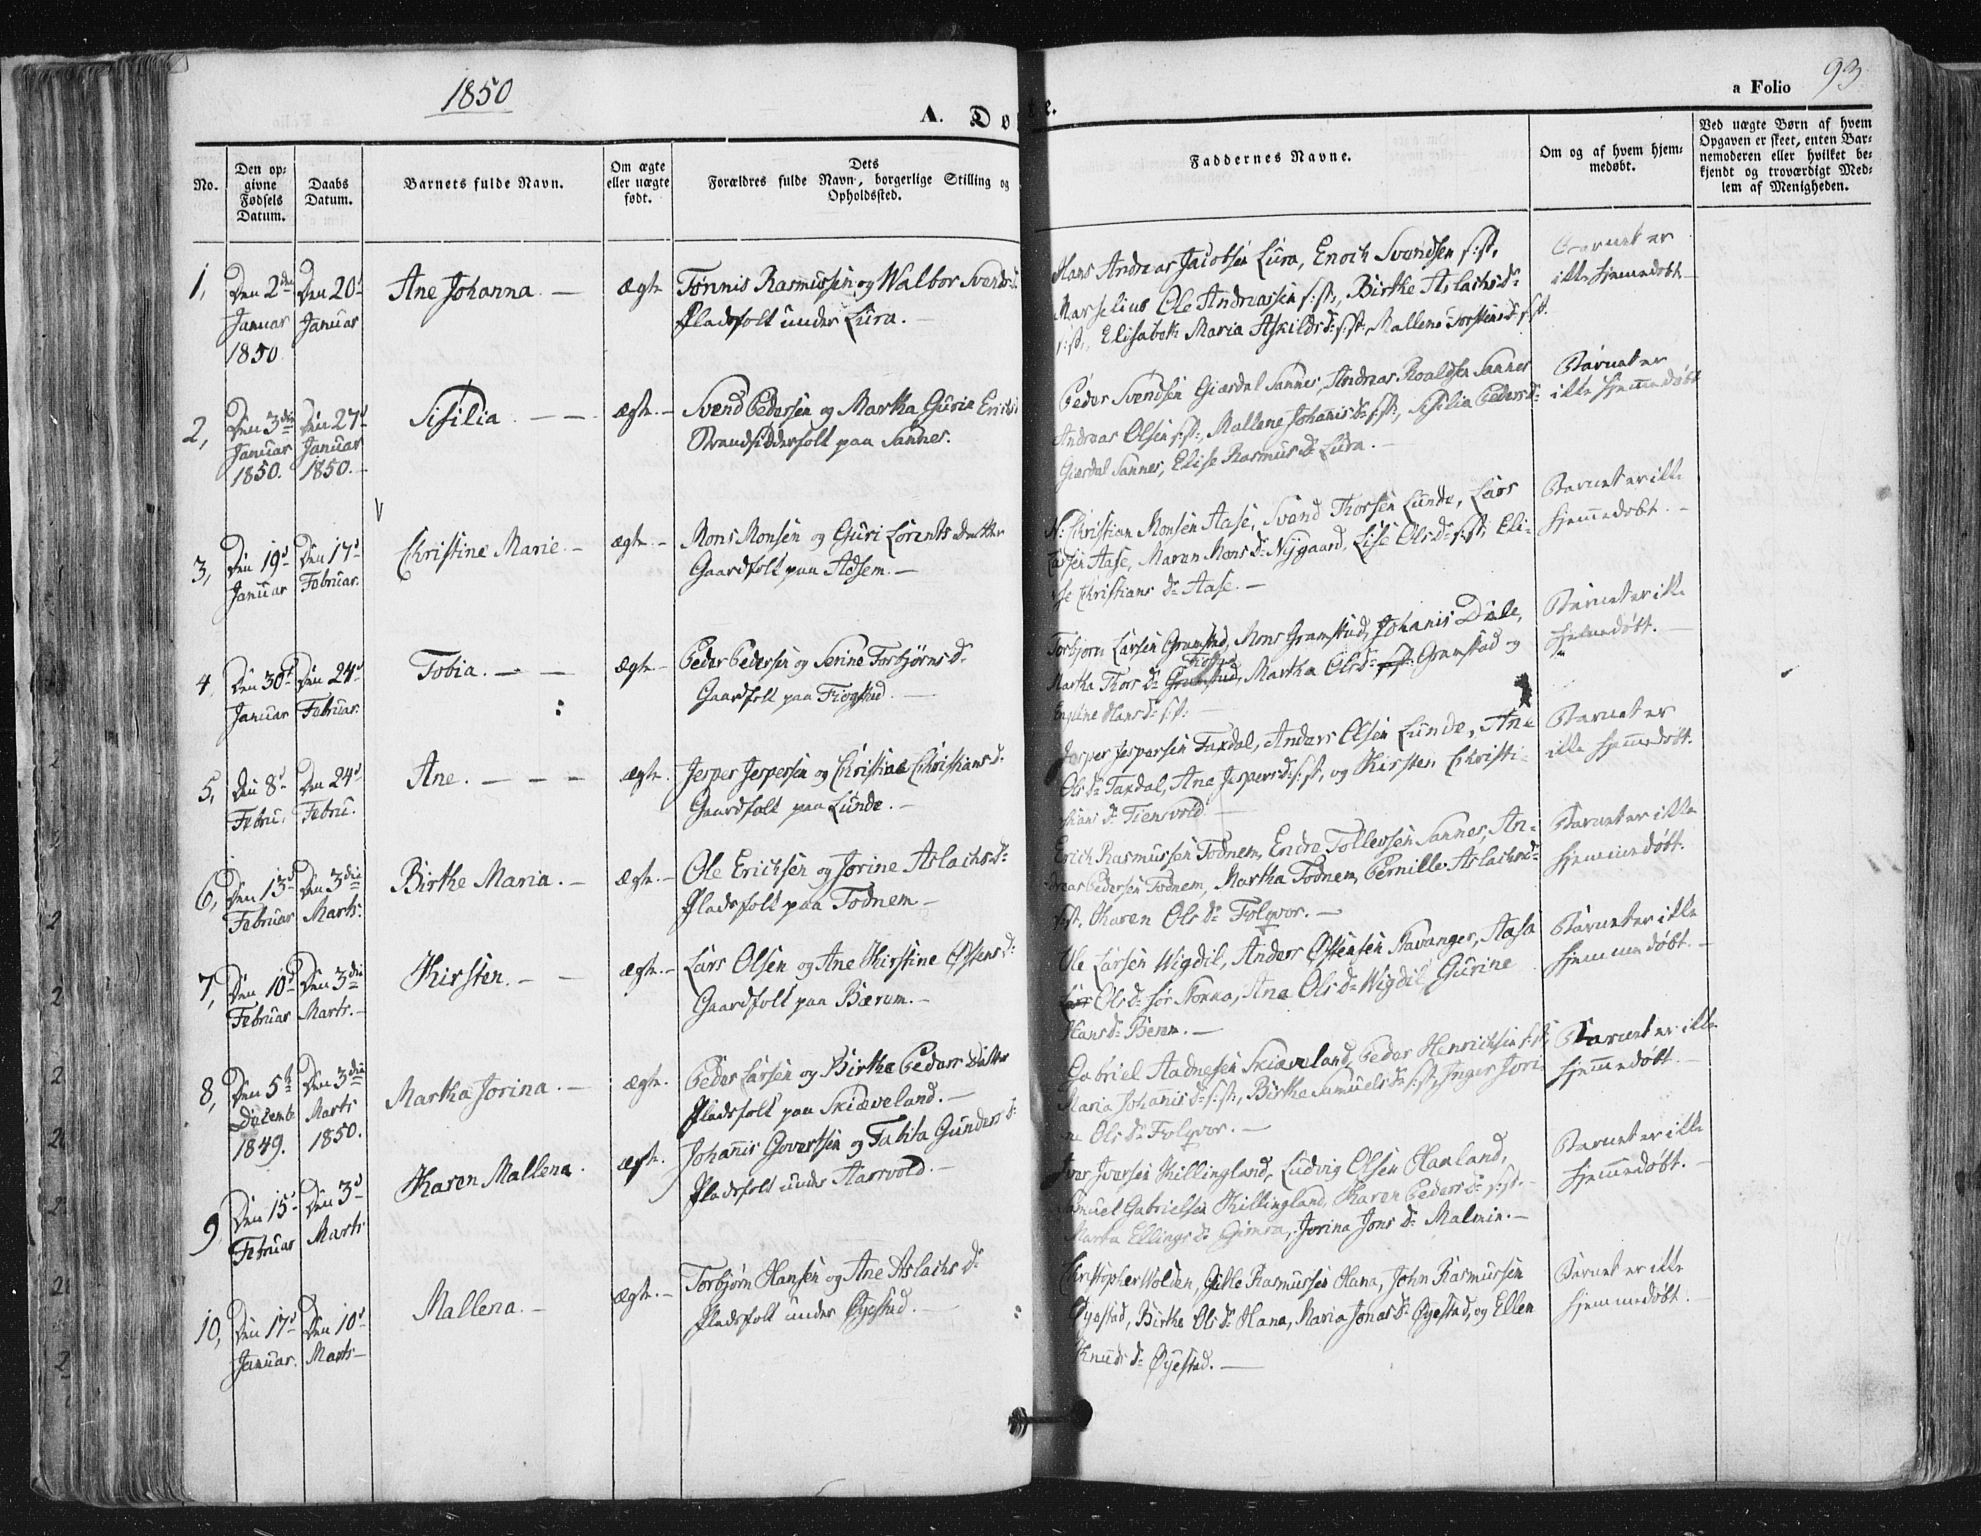 1850
A. Do
e.
a Folio 93.
No.
Den op-
givne
Fødsels
Datum.
Daabs
Datum.
Barnets fulde Navn.
Om ægte
eller uægte
født.
Dets
Forældres fulde Navn, borgerlige Stilling og
Opholdssted.
Faddernes Navne.
Om og af hvem hjem-
medøbt.
Ved uægte Børn af hvem
Opgaven er skeet, enten Bar-
nemoderen eller hvilket be-
kjendt og troværdigt Med-
lem af Menigheden.
1,
Den 2den
Januar
1850.
Den 20d
Januar
Ane Johanna. —
ægte
Tønnis Rasmussen og Walbor Svends
Pladsfolk under Lura. —
Hans Andreas Jacobsen Lura, Enoch Svendsen s:st,
Marselius Ole Andreassen s:st, Birthe Aslachsd:
s:st, Elisabeth Maria Askildsd: s:st, Mallene Torstensd: s:st.
Barnet er
ikke hjemedøbt
2,
Den 3die
Januar
1850.
Den 27d
Januar
1850. —
Sisilia. — —
ægte. —
Svend Pedersen og Martha Gurie Erichs
Strandsidderfolk paa Sannes.
Peder Svendsen Giærdal Sannes, Andreas Roaldsen Sannes
Andreas Olsen s:st:, Mallene Johanisd: s:st:, Sisilia Pedersd:
Giærdal Sannes, Elise Rasmusd: Lura. —
Barnet er
ikke hjemmedøbt
3,
Den 19d
Januar
Den 17d
Februar.
Christine Marie. —
ægte. —
Mons Monsen og Guri Lorents datter
Gaardfolk paa Adsem. —
Christian Monsen Aase, Svend Thorsen Lunde, Lars
Larsen Aase, Maren Monsd: Nygaard, Lise Olsd: s:st, Eli-
se Christiansd: Aase. —
Barnet er ikke
hjemmedøbt. —
4
Den 30d
Januar
Den 24d
Februar.
Tobia. — —
ægte —
Peder Pedersen og Serine Torbjørnsd:
Gaardfolk paa Fiogstad. —
Torbjorn Larsen Gramstad, Mons Gramstad, Johanis Dale,
Martha Thorsd: Gramstad, Martha Olsd: s:st: Gramstad og
Engeline Hansd: s:st: —
Barnet er ikke
hjemedøbt. —
5,
Den 8d
Febru.
Den 24d
Febru.
Ane. — — —
ægte.
Jesper Jespersen og Christine Christiansd:
Gaardfolk paa Lunde. —
Jesper Jespersen Taxdal, Anders Olsen Lunde, Ane
Olsd: Taxdal, Ane Jespersd: s:st, og Kirsten Christi-
ansd: Tiensvold. —
Barnet er
ikke hjemmedøbt.
6,
Den 13d
Februar
Den 3die
Marts.
Birthe Maria. —
ægte. —
Ole Erichsen og Jorine Aslachsd:
Pladsfolk paa Todnem —
Erich Rasmussen Todnem, Endre Tollefsen Sannes, An-
dreas Pedersen Todnem, Martha Todnem, Pernille Aslachsd:
s:st. Karen Olsd: Folqvor. —
Barnet er ikke
hjemmedøbt.
7,
Den 10d
Februar
Den 3die
Marts. —
Kirsten. — —
ægte. —
Lars Olsen og Ane Kirstine Østensd:
Gaardfolk paa Bærem. —
Ole Larsen Wigdil, Anders Østensen Stavanger, Aasa
Olsd: Sør Storra, Ane Olsd: Wigdil, Gurine
Hansd: Berem. —
Barnet er ikke
hjemmedøbt. —
8,
Den 5te
Decemb.
1849.
Den 3die
Marts
1850.
Martha Jorina. —
ægte.
Peder Larsen og Birthe Peders Datter
Pladsfolk paa Skiæveland. —
Gabriel Aadnesen Skiæveland, Peder Henrichsen s:st,
Maria Johanisd: s:st, Birthe Samuelsd: s:st, Inger Jori-
ne Olsd: Folqvor. —
Barnet er ikke
hjemmedøbt.
9,
Den 15d
Februar
Den 3d
Marts
Karen Mallena.
ægte.
Johannis Govertsen og Tabita Gundersd:
Pladsfolk under Aasvold. —
Iver Iversen Killingland, Ludvig Olsen Hauland,
Samuel Gabrielsen Killingland, Karen Pedersd: s:st. —
Marta Ellingsd: Gimra, Jorina Jonsd: Malmin. —
Barnet er ikke
hjemmedøbt. —
10,
Den 17d
Januar.
Den 10d
Marts —
Mallena. —
ægte. —
Torbjørn Hansen og Ane Aslachsd:
Pladsfolk under Øyestad. —
Christopher Wolden, Gitle Rasmussen Hana, John Rasmussen
Øyestad, Birthe Olsd: Hana, Maria Jonasd: Øyestad, og Ellen
Knudsd: Øyestad. —
Barnet er ikke
hjemmedøbt. —